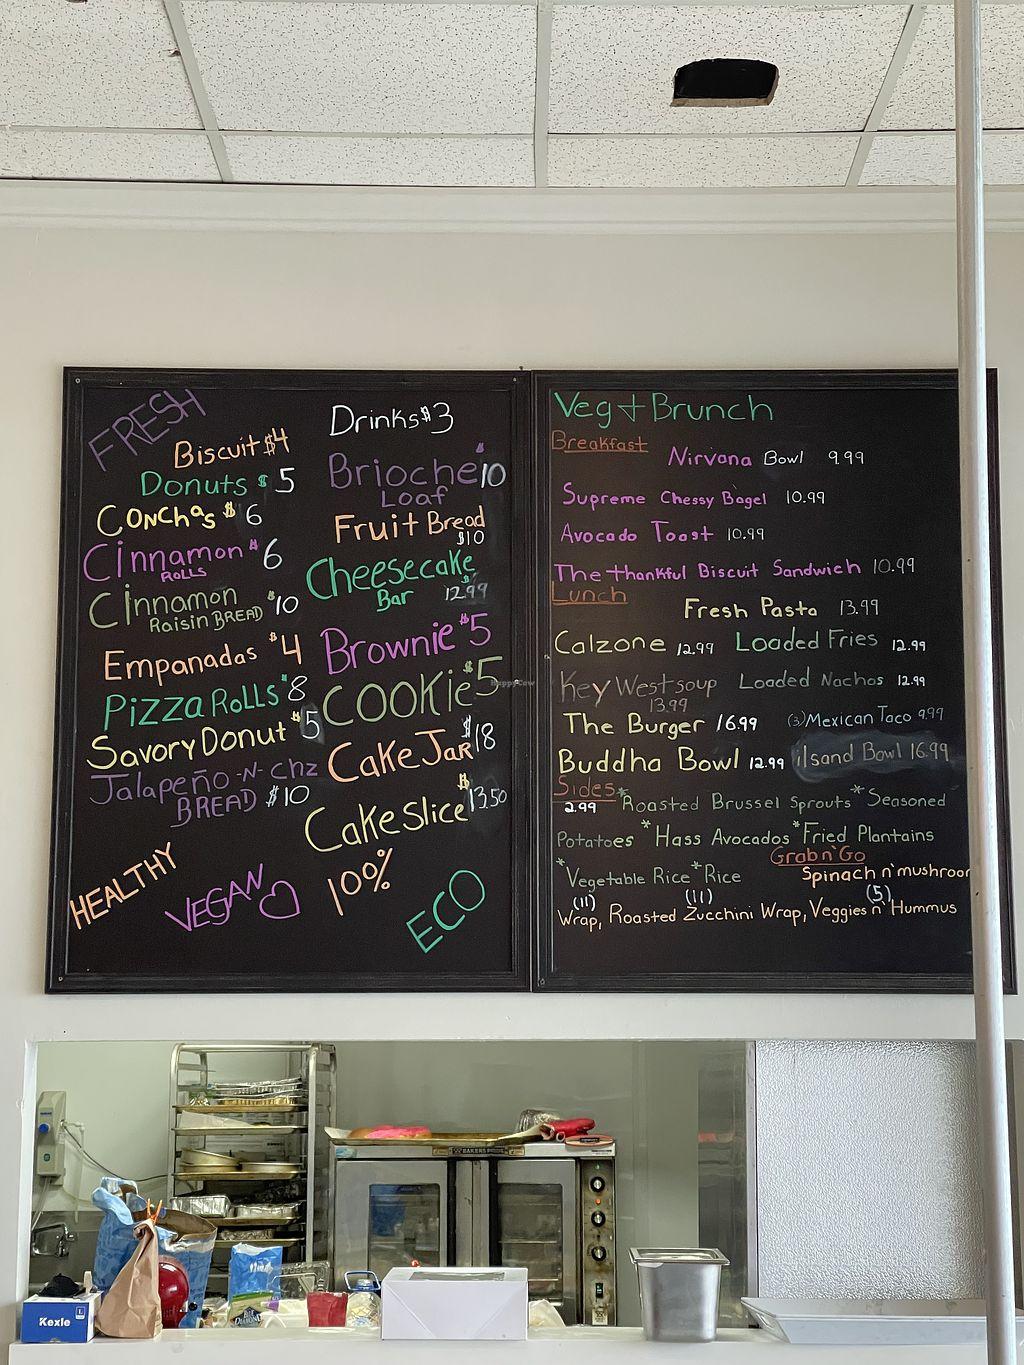 FRESH
Biscuit $4
Donuts $5
Conchas $6
Cinnamon $6
ROLLS
Cinnamon
Raisin BREAD $10
Empanadas $4
Pizza Rolls $8
Savory Donut $5
Jalapeño -N- Chz
BREAD $10
HEALTHY
VEGAN
Drinks $3
Brioche $10
Loaf
Fruit Bread
$10
Cheesecake
Bar $12.99
Brownie $5
COOKie $5
Cake Jar $18
Cake Slice $13.50
10%
ECO
Veg + Brunch
Breakfast
Nirvana Bowl 9.99
Supreme Chessy Bagel 10.99
Avocado Toast 10.99
The thankful Biscuit Sandwich 10.99
Lunch
Fresh Pasta 13.99
Calzone 12.99 Loaded Fries 12.99
Key West soup Loaded Nachos 12.99
13.99
The Burger 16.99 (3) Mexican Taco 9.99
Buddha Bowl 12.99 ilsand Bowl 16.99
Sides
2.99 *Roasted Brussel Sprouts *Seasoned
Potatoes *Hass Avocados *Fried Plantains
*Vegetable Rice *Rice
Grab n' Go
Spinach n' mushroom
(11) (11) (5)
Wrap, Roasted Zucchini Wrap, Veggies n' Hummus
HappyCow
BAKERS PRIDE
Kexle
BLUE DIAMOND